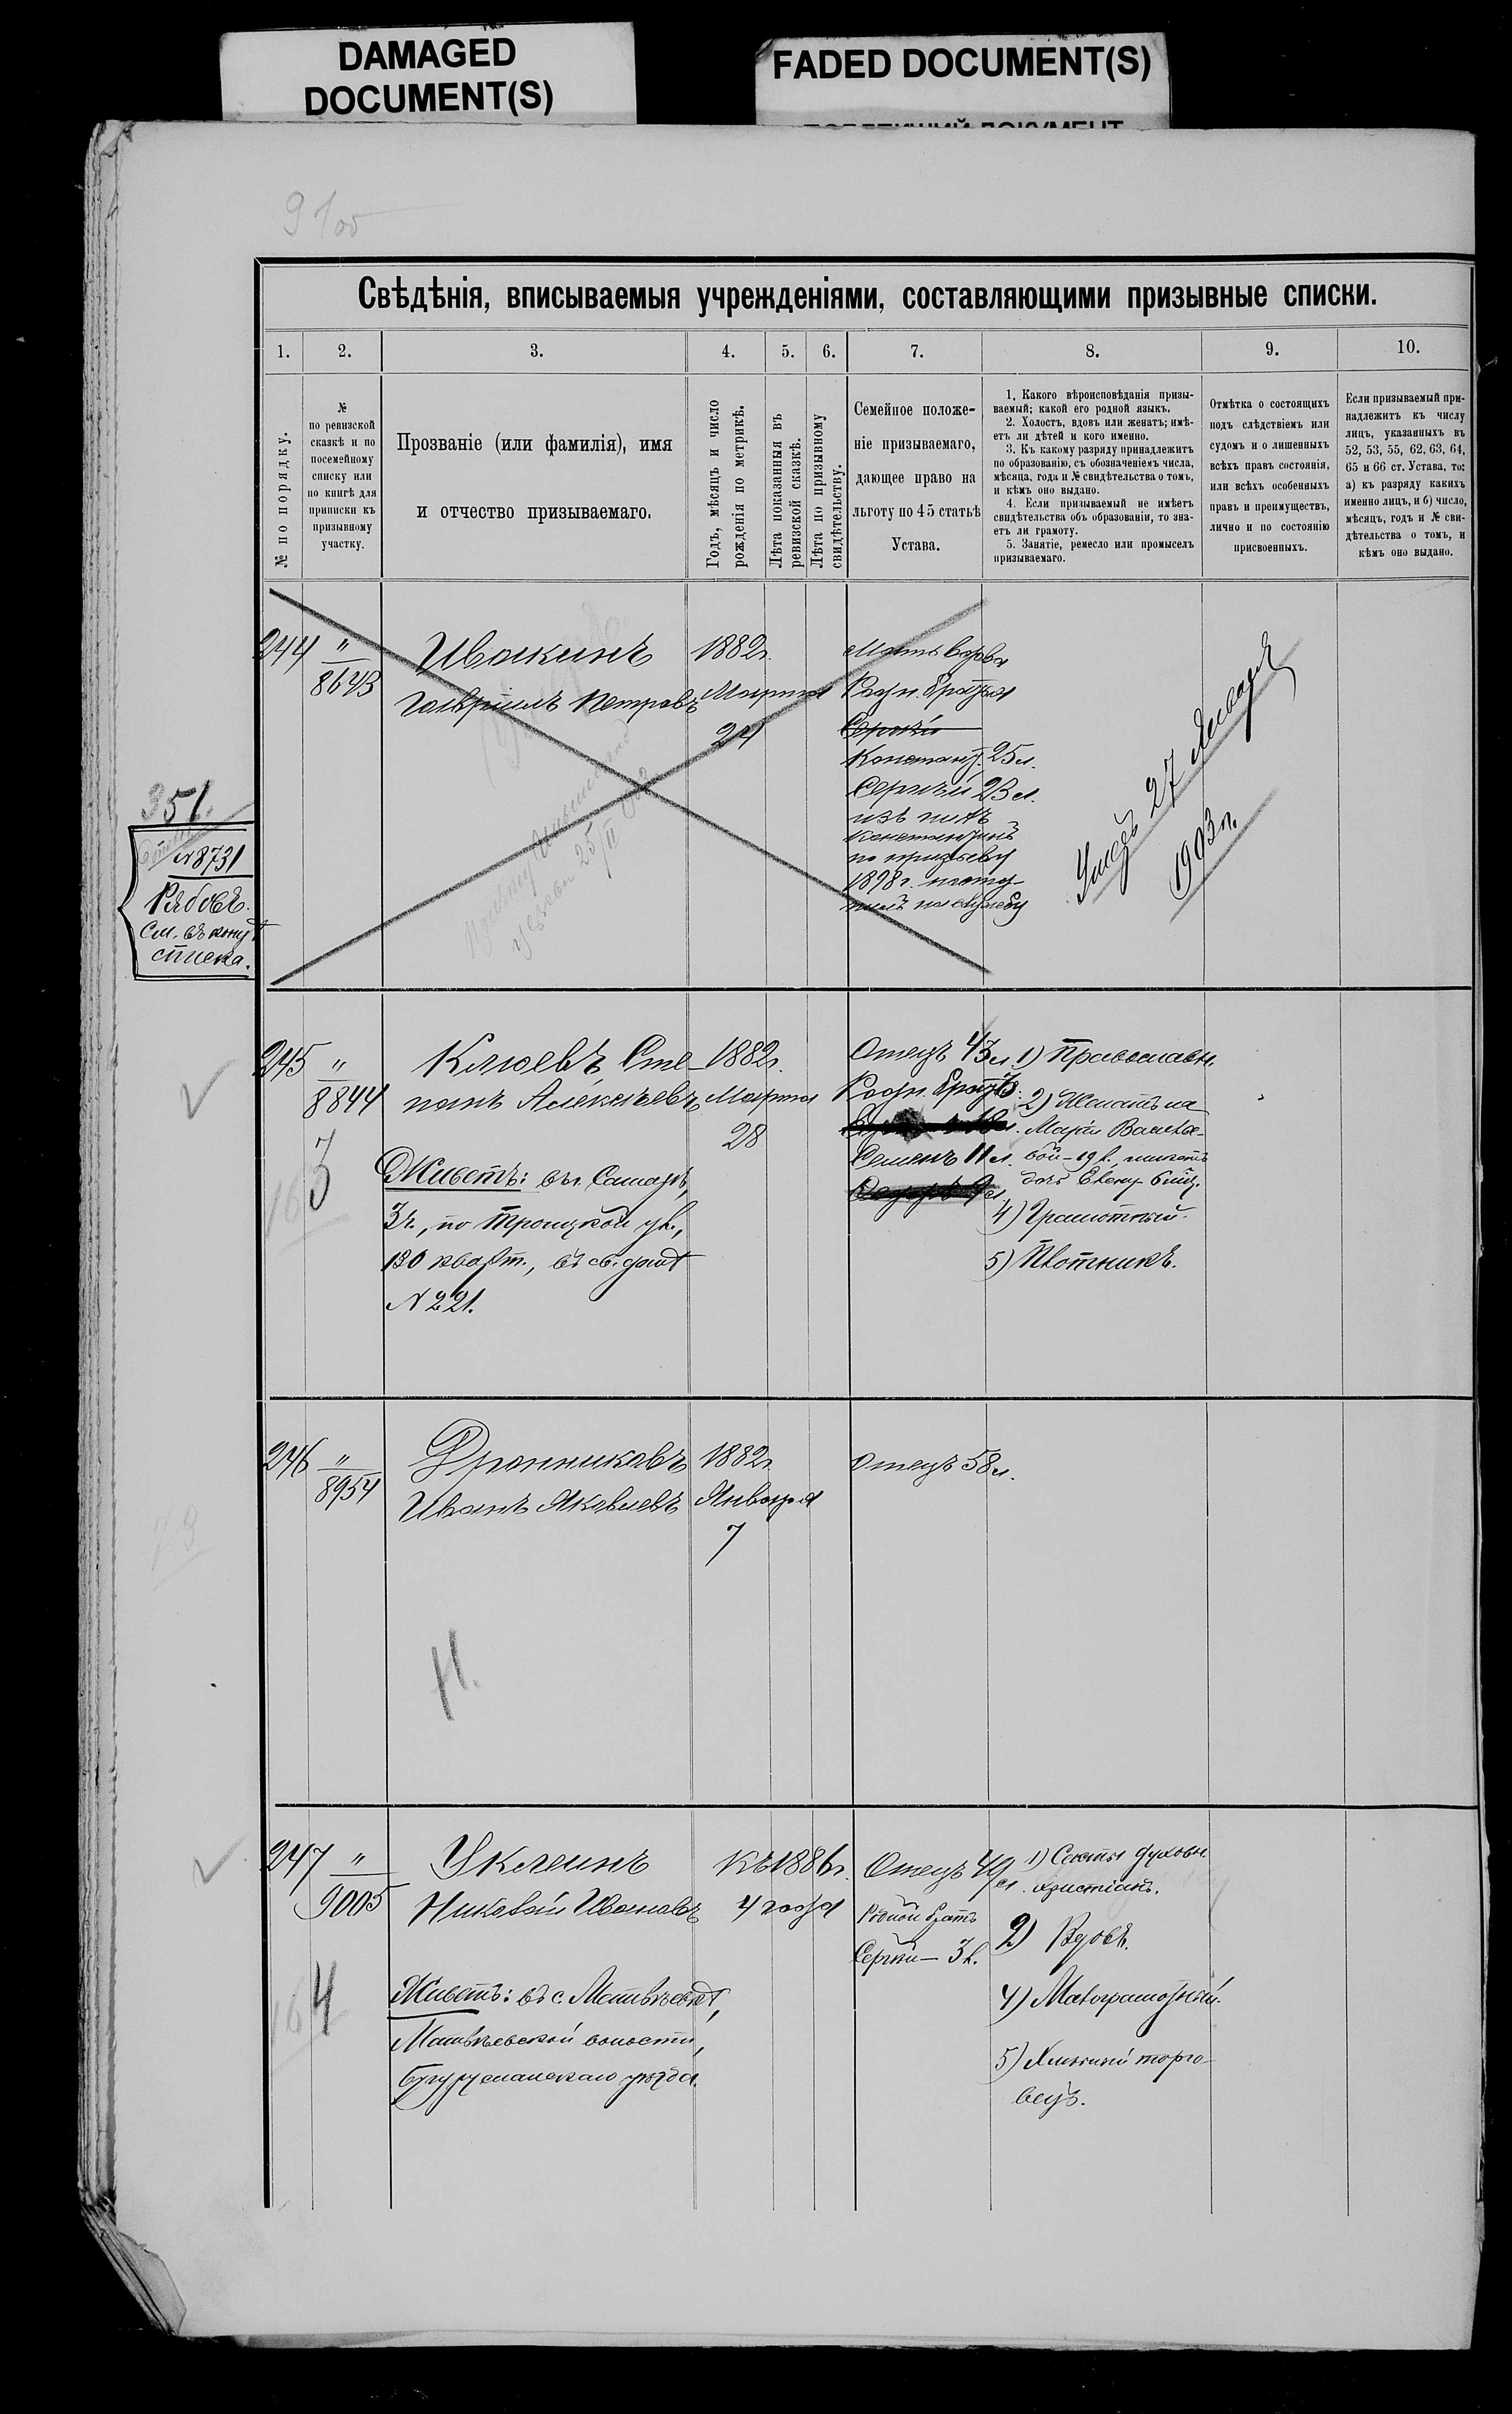 DAMAGED
DOCUMENT(S)
FADED DOCUMENT(S)
Свѣдѣнія, вписываемыя учрежденіями, составляющими призывные списки.
1.
2.
3.
4.
5.
6.
7.
8.
9.
10.
№ по порядку.
№
по ревизской
сказкѣ и по
посемейному
списку или
по книгѣ для
приписки къ
призывному
участку.
Прозваніе (или фамилія), имя
и отчество призываемаго.
Годъ, мѣсяцъ и число
рожденія по метрикѣ.
Лѣта показанныя въ
ревизской сказкѣ.
Лѣта по призывному
свидѣтельству.
Семейное положе-
ніе призываемаго,
дающее право на
льготу по 45 статьѣ
Устава.
1. Какого вѣроисповѣданія призы-
ваемый; какой его родной языкъ.
2. Холостъ, вдовъ или женатъ; имѣ-
етъ ли дѣтей и кого именно.
3. Къ какому разряду принадлежитъ
по образованію, съ обозначеніемъ числа,
мѣсяца, года и № свидѣтельства о томъ,
и кѣмъ оно выдано.
4. Если призываемый не имѣетъ
свидѣтельства объ образованіи, то зна-
етъ ли грамоту.
5. Занятіе, ремесло или промыселъ
призываемаго.
Отмѣтка о состоящихъ
подъ слѣдствіемъ или
судомъ и о лишенныхъ
всѣхъ правъ состоянія,
или всѣхъ особенныхъ
правъ и преимуществъ,
лично и по состоянію
присвоенныхъ.
Если призываемый при-
надлежитъ къ числу
лицъ, указанныхъ въ
52, 53, 55, 62, 63, 64,
65 и 66 ст. Устава, то:
а) къ разряду какихъ
именно лицъ, и б) число,
мѣсяцъ, годъ и № сви-
дѣтельства о томъ, и
кѣмъ оно выдано.
244
"
8643
Ивакинъ
Гавріилъ Петровъ
1882г.
Марта
24
Мать вдова
Родн. братья
Сергѣй
Констант. 25 л.
Сергѣй 23 л.
изъ нихъ
Константинъ
по призыву
1898 г. посту-
пилъ на службу
Умеръ 27 Января
1903 г.
351.
№8731
Рябовъ.
См. въ концѣ
списка.
245
"
8844
3
Клюевъ, Сте-
панъ Алексѣевъ
1882г.
Марта
28
Живетъ: въ г. Самарѣ,
3 ч., по Троицкой ул.,
130 кварт., въ св. домѣ
№ 221.
Отецъ 43 л.
Родн. братъ:
Семенъ 11 л.
1) Православн.
2) Женатъ на
Маріи Василье-
вой - 19 л. имѣетъ
дочь
4) Грамотный.
5) Плотникъ.
246
"
8954
Дронниковъ
Иванъ Яковлевъ
1882г.
Января
7
Отецъ 58 л.
Н.
247
"
9005
4
Уклеинъ
Николай Ивановъ
Къ 1886г.
4 года
Живетъ: въ с. Матвѣевкѣ,
Матвѣевской волости,
Бугурусланскаго уѣзда.
Отецъ 49 л.
Родной братъ
Сергѣй — 3 л.
1) Секты духовн.
христіанъ.
2) Вдовъ.
4) Малограмотный.
5) Хлѣбный торго-
вецъ.